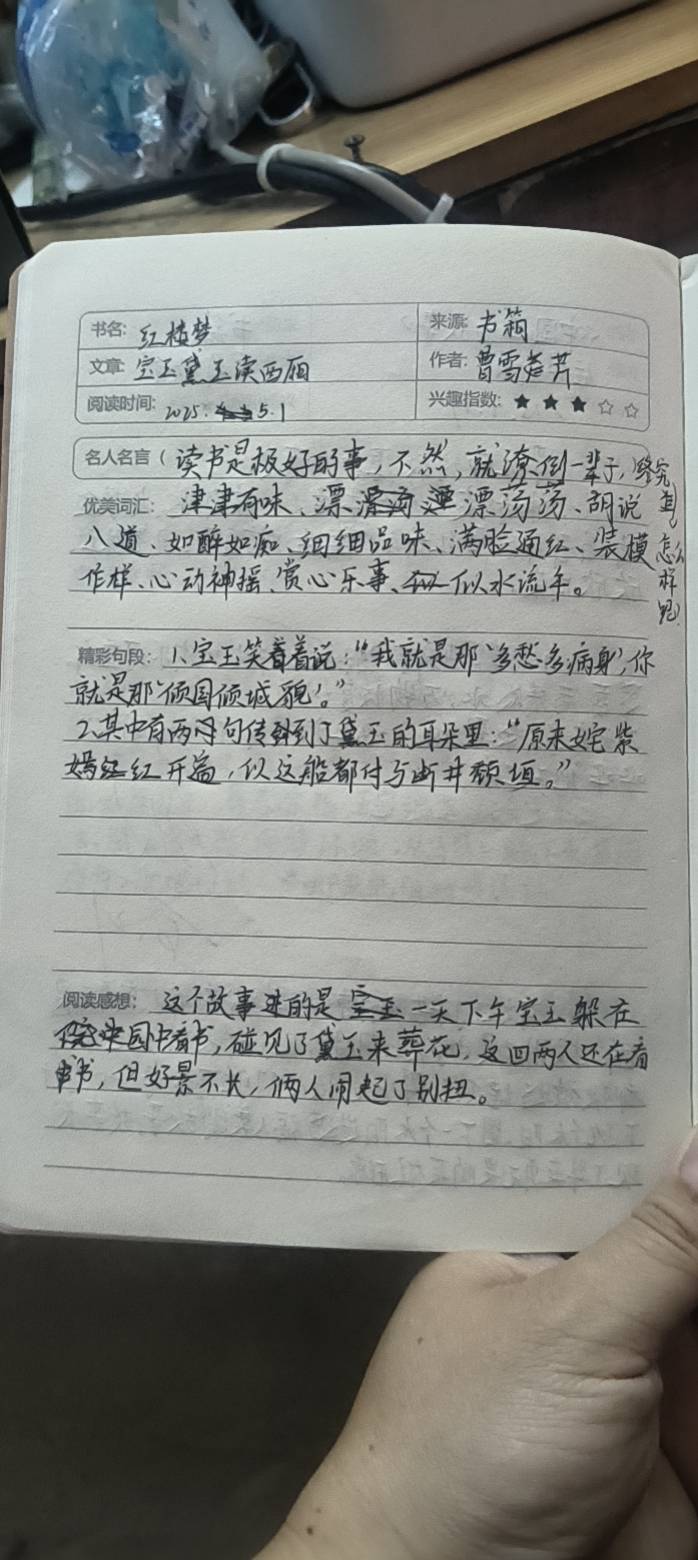 书名: 红楼梦 来源: 书箱
文章: 宝玉黛玉读西厢 作者: 曹雪芹
阅读时间: 2025. 5.1 兴趣指数: ★ ★ ★ ☆ ☆
名人名言（ 读书是极好的事，不然，就潦倒一辈子，
优美词汇: 津津有味、漂 漂荡荡、胡说
八道、如醉如痴、细细品味、满脸通红、装模
作样、心动神摇、赏心乐事、似水流年。
精彩句段: 1、宝玉笑着着说：“我就是那‘多愁多病身’，你
就是那‘倾国倾城貌’。”
2、其中有两句传到了黛玉的耳朵里：“原来姹紫
嫣红开遍，似这般都付与断井颓垣。”
阅读感想: 这个故事讲的是一天下午宝玉躲在
园中看书，碰见了黛玉来葬花，这回两人还在看
书，但好景不长，俩人闹起了别扭。